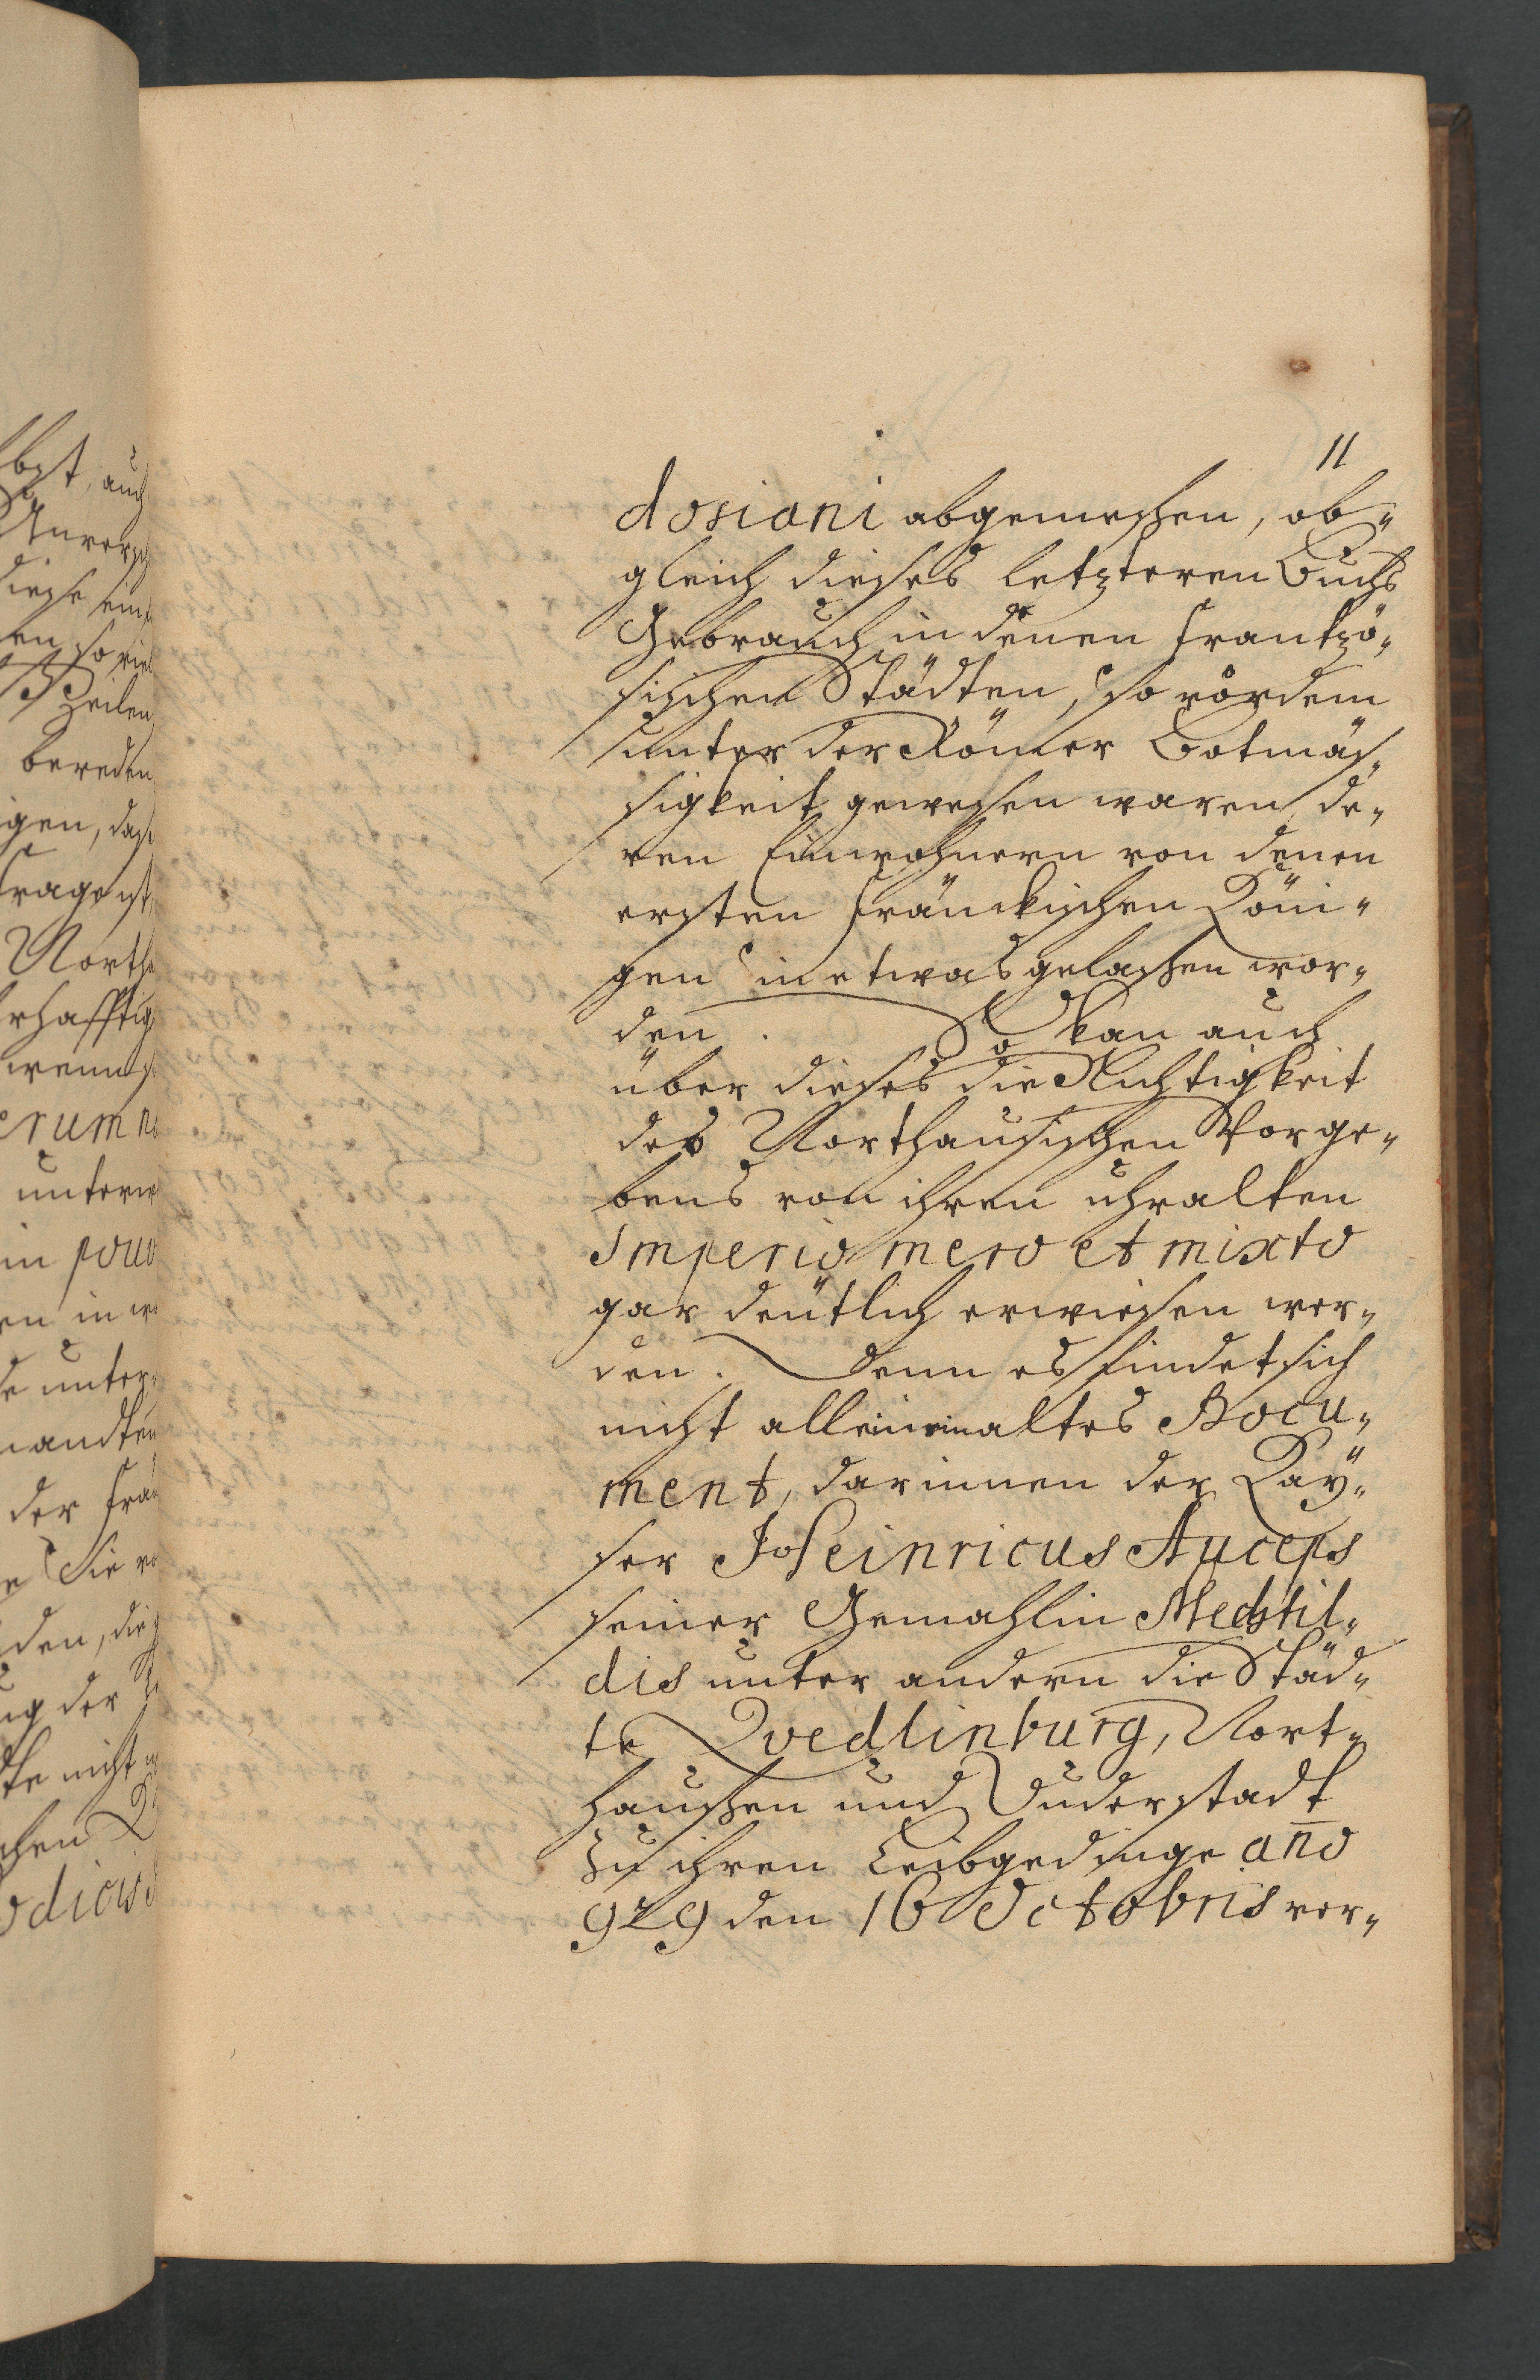 11
dosiani abgemeßen, ob-
gleich dieses letzteren Buchs
Gebrauch in denen Frantzö-
sischen Städten, so vordem
unter der Römer Botmäs-
sigkeit gewesen waren, de-
ren Einwohnern von denen
ersten Fränckischen Köni-
gen in etwas gelaßen wor-
den. So kan auch
über dieses die Nichtigkeit
des Northausischen Vorge-
bens von ihren uhralten
Imperio mero et mixto
gar deütlich erwiesen wer-
den. Denn es findet sich
nicht allein ein altes Docu-
ment, darinnen der Käy-
ser Heinricus Auceps
seiner Gemahlin Mechtil-
dis unter andern die Städ-
te Qvedlinburg, Nort-
haußen und Duderstadt
zu ihren Leibgedinge año
929 den 16 Octobris ver-
auch
diese
so viel
Zeilen
bereden
unter
der
Sie
den,
der
nicht